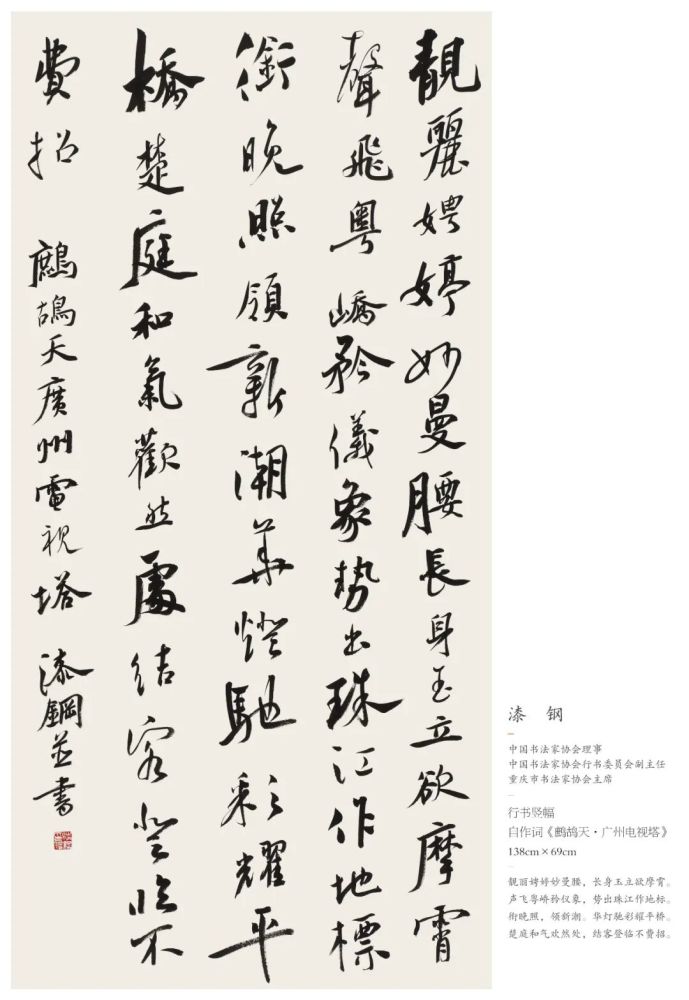 靚麗娉婷妙曼腰長身玉立欲摩霄
聲飛粵嶠矜儀象勢出珠江作地標
銜晚照領新潮華燈馳彩耀平
橋楚庭和氣歡然處結客登臨不
費招 鷓鴣天廣州電視塔 漆鋼並書
漆 钢
中国书法家协会理事
中国书法家协会行书委员会副主任
重庆市书法家协会主席
行书竖幅
自作词《鹧鸪天·广州电视塔》
138cm×69cm
靓丽娉婷妙曼腰，长身玉立欲摩霄。
声飞粤峤矜仪象，势出珠江作地标。
衔晚照，领新潮。华灯驰彩耀平桥。
楚庭和气欢然处，结客登临不费招。